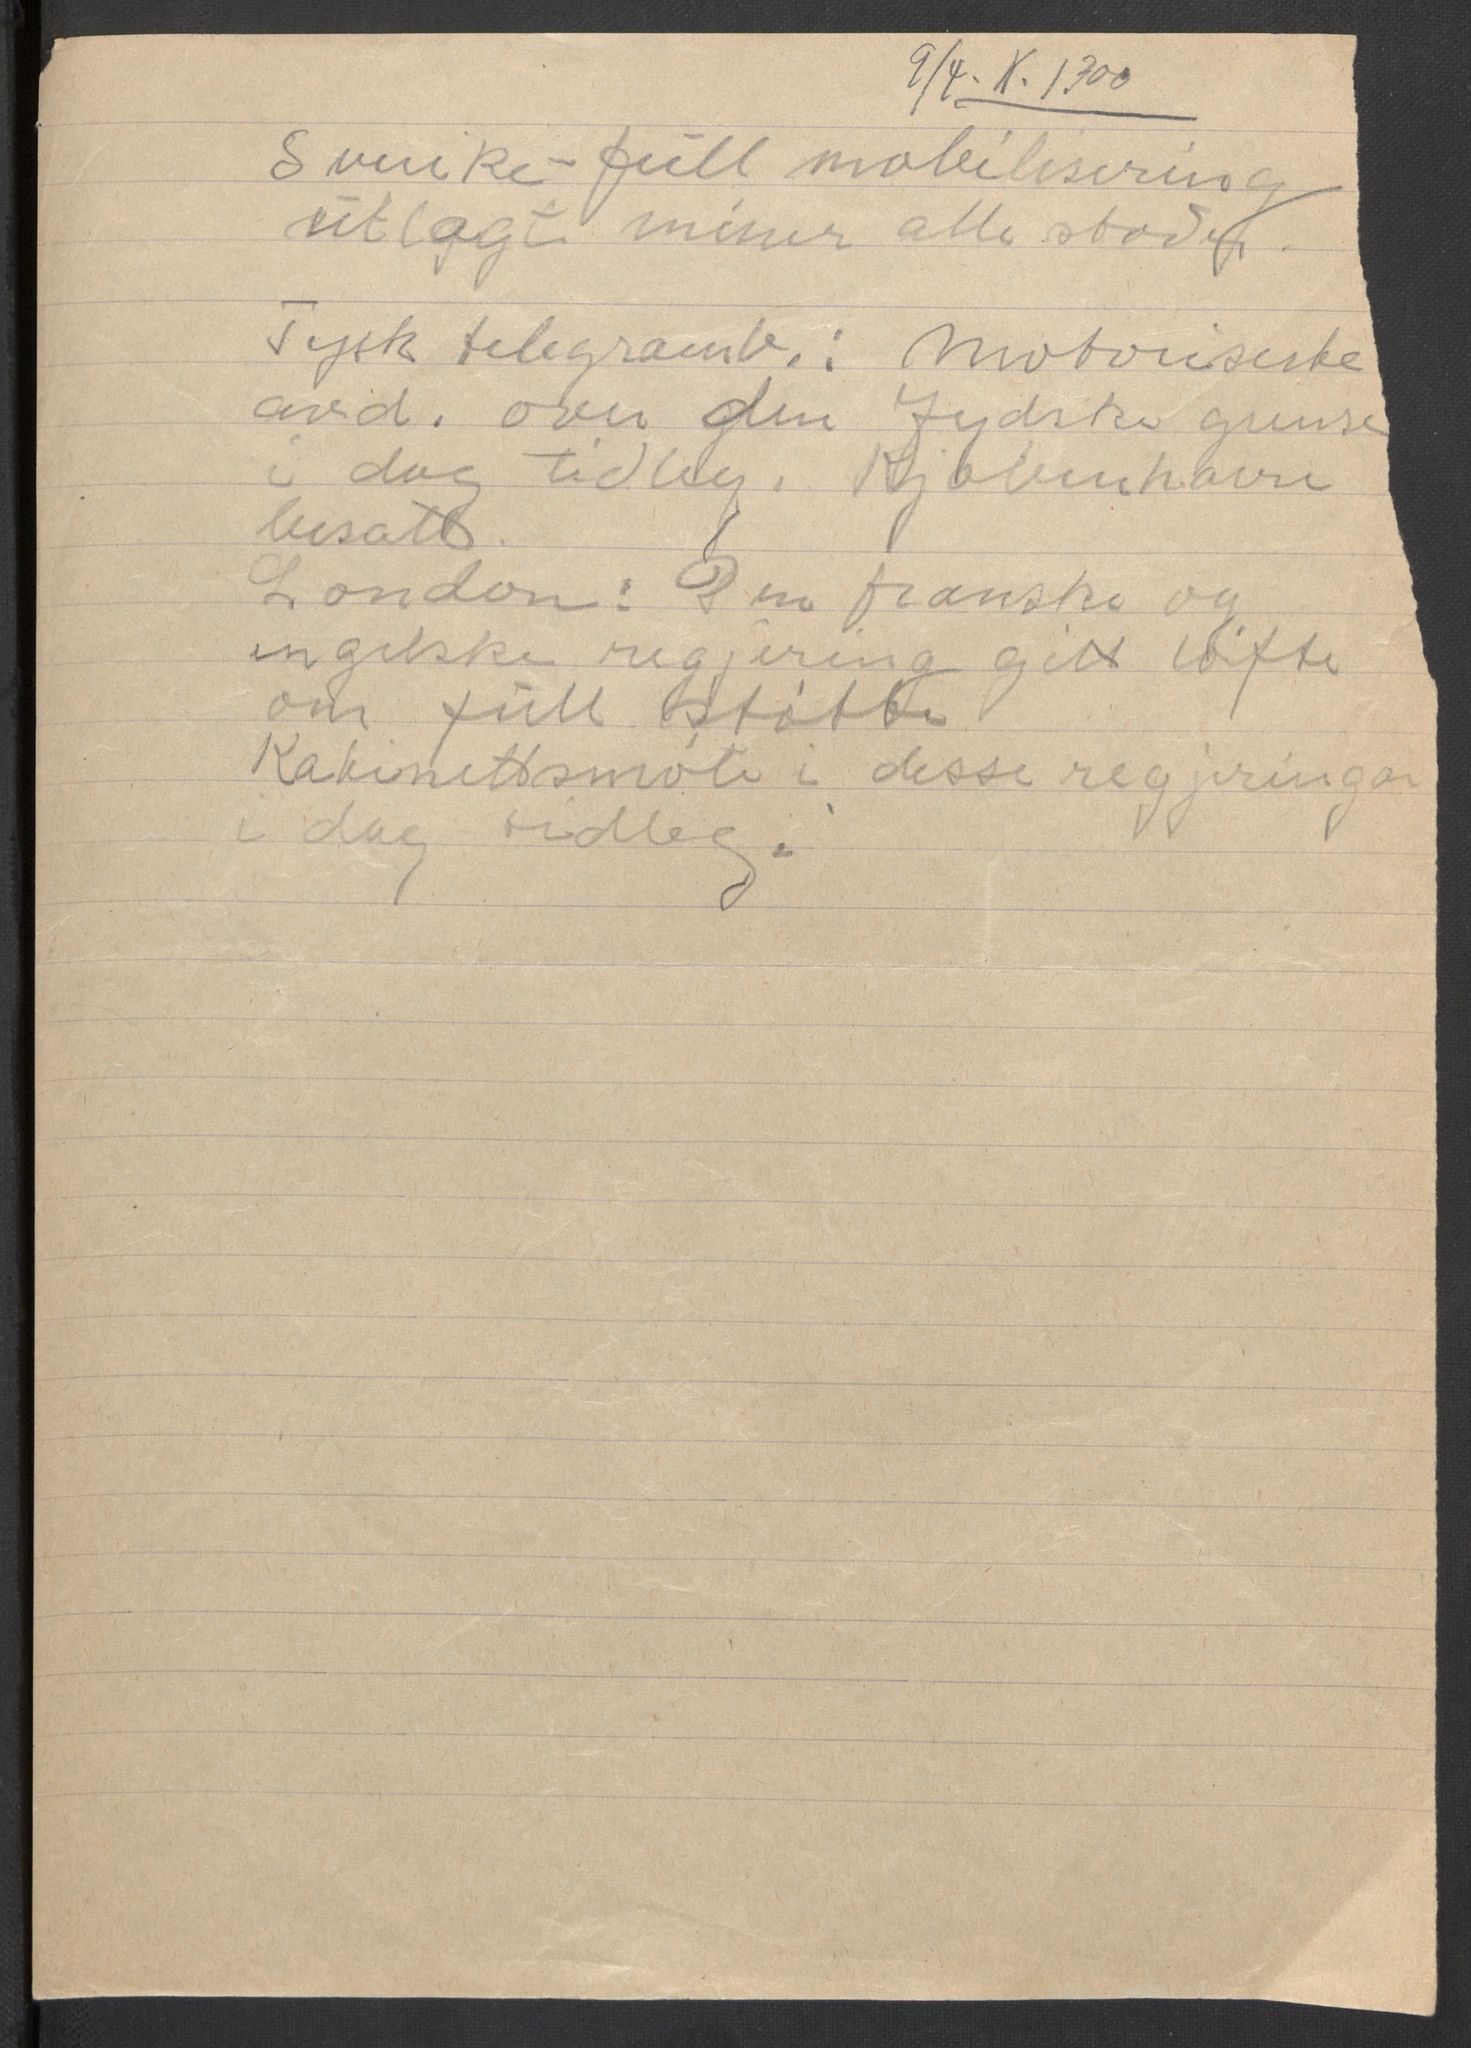 9/4. K. 1300
Sverike - full mobilisering
utlagt miner alle stader.
Tysk telegramb.: Motoriserte
avd. over den Jydske grense
i dag tidleg. Kjøbenhavn
besatt.
London: Den franske og
engelske regjering gitt løfte
om full støtte
Kabinettsmøte i desse regjeringar
i dag tidleg.